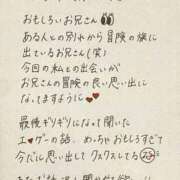 おもしろいお兄さん
ある人との別れから冒険の旅に
出ているお兄さん(笑)
今回の私との出会いが
お兄さんの冒険の良い思い出に
なってますように
最後ギリギリになって聞いた
エ ゲーの話、めっちゃおもしろすぎて
今だに思い出してクスクスしてる